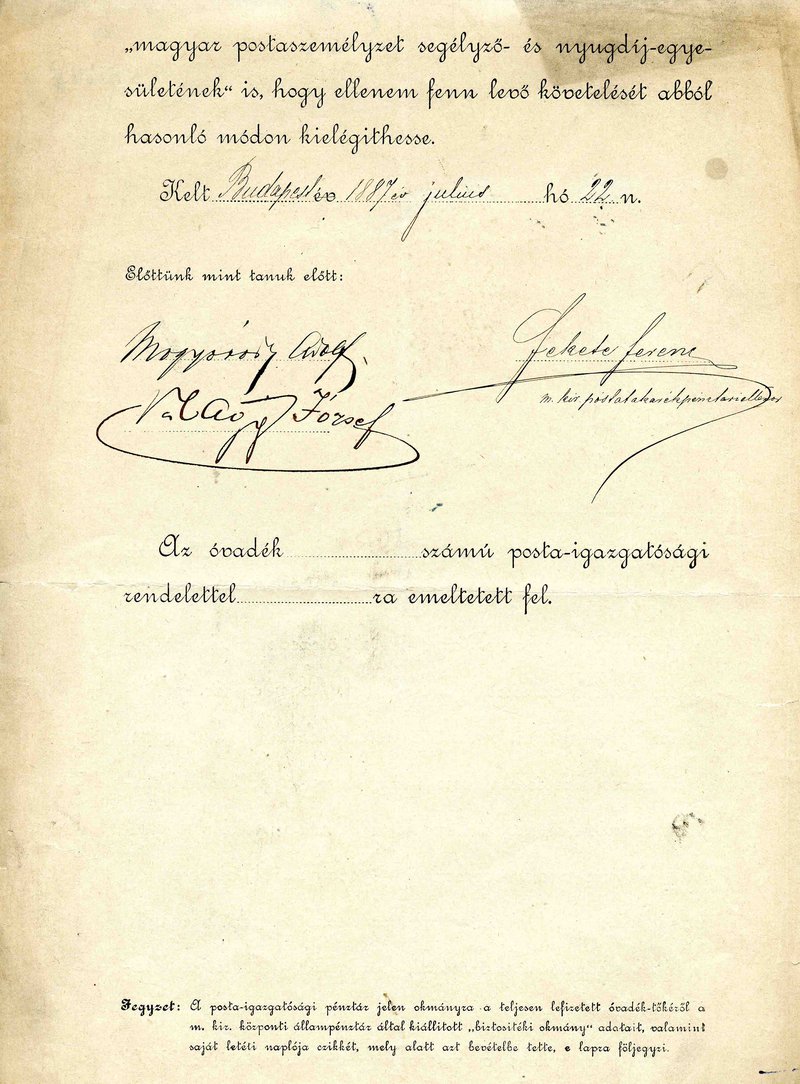 „magyar postaszemélyzet segélyző- és nyugdíj-egye-
sületének“ is, hogy ellenem fenn levő követelését abból
hasonló módon kielégithesse.
Kelt Budapest év 1887 év julius hó 22 n.
Előttünk mint tanuk előtt:
Fekete Ferenc
Adolf
m. kir. postatakarékpénztári
József
Az óvadék számú posta-igazgatósági
rendelettel ra emeltetett fel.
Jegyzet: A posta-igazgatósági pénztár jelen okmányra a teljesen lefizetett óvadék-tőkéről a
m. kir. központi állampénztár által kiállitott „biztositéki okmány“ adatait, valamint
saját letéti naplója czikkét, mely alatt azt bevételbe tette, e lapra följegyzi.